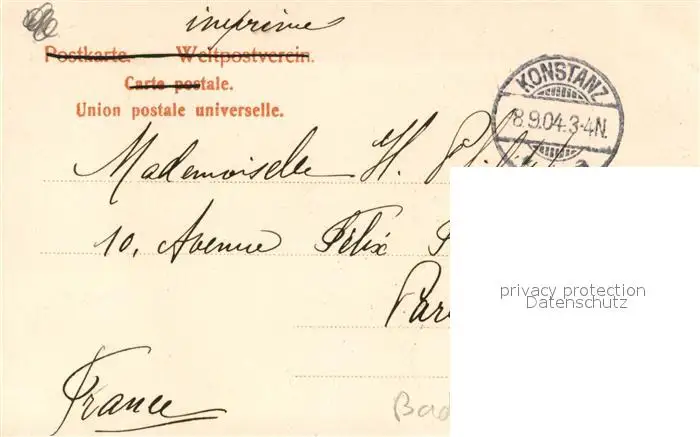 imprimé
Postkarte. Weltpostverein.
Carte postale.
Union postale universelle.
KONSTANZ
8.9.04.3-4N.
Mademoiselle H.
10, Avenue Félix
privacy protection
Datenschutz
France